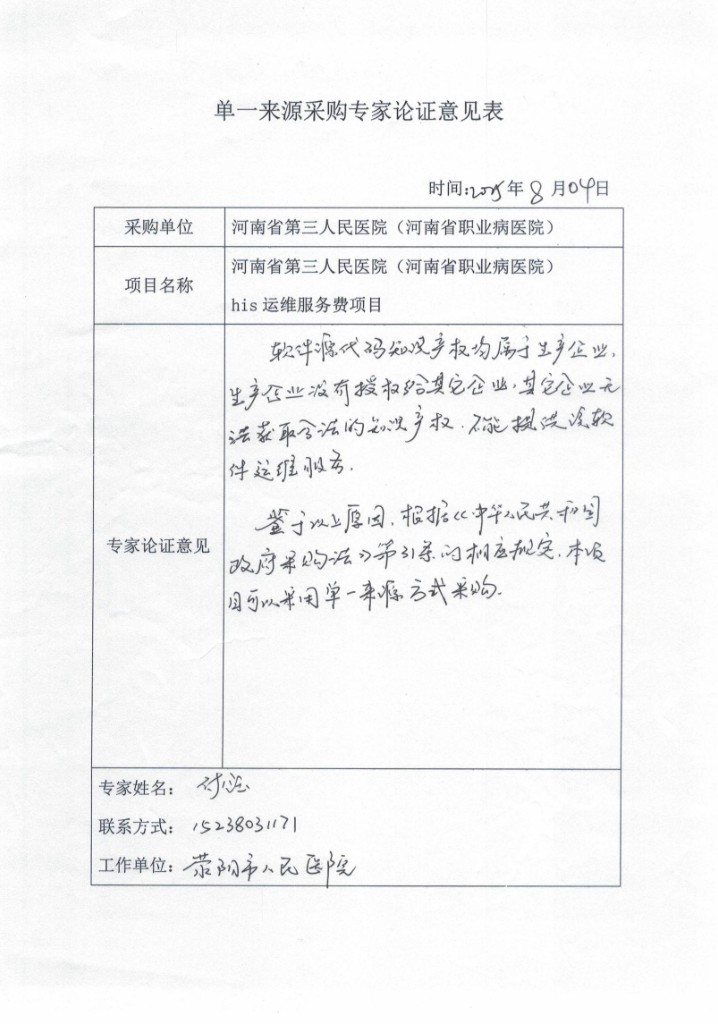 单一来源采购专家论证意见表
时间:2025年8月04日
采购单位
河南省第三人民医院（河南省职业病医院）
项目名称
河南省第三人民医院（河南省职业病医院）
his运维服务费项目
专家论证意见
软件源代码知识产权均属于生产企业,
生产企业没有授权给其它企业,其它企业无
法获取合法的知识产权.不能提供该软
件运维服务.
鉴于以上原因,根据《中华人民共和国
政府采购法》第31条的相应规定,本项
目可以采用单一来源方式采购.
专家姓名：
联系方式：15238031171
工作单位：荥阳市人民医院